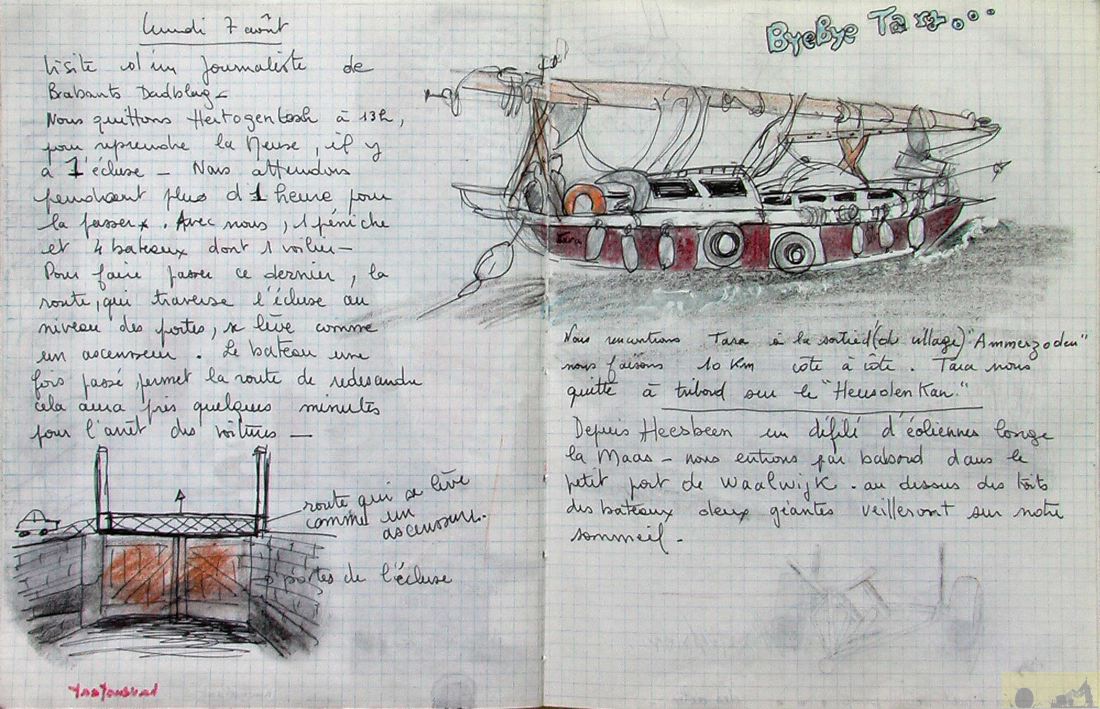 lundi 7 août
Visite d'un journaliste de
Brabants Dadblag -
Nous quittons Hertogenbosh à 13h,
pour reprendre la Meuse, il y
a 1 écluse - Nous attendons
pendant plus d'1 heure pour
la passer. Avec nous, 1 péniche
et 4 bateaux dont 1 voilier -
Pour faire passer ce dernier, la
route, qui traverse l'écluse au
niveau des portes, se lève comme
un ascenseur. Le bateau une
fois passé, permet la route de redescendre
cela aura pris quelques minutes
pour l'arrêt des voitures -
route qui se lève
comme un
ascenseur.
portes de l'écluse
ByeBye Tara...
Tara
Nous rencontrons Tara à la sortie (du village) "Ammerzoden"
nous faisons 10 Km côte à côte. Tara nous
quitte à tribord sur le "Heusden Kan."
Depuis Heesbeen un défilé d'éoliennes longe
la Maas - nous entrons par babord dans le
petit port de Waalwijk. au dessus des toits
des bateaux deux géantes veilleront sur notre
sommeil.